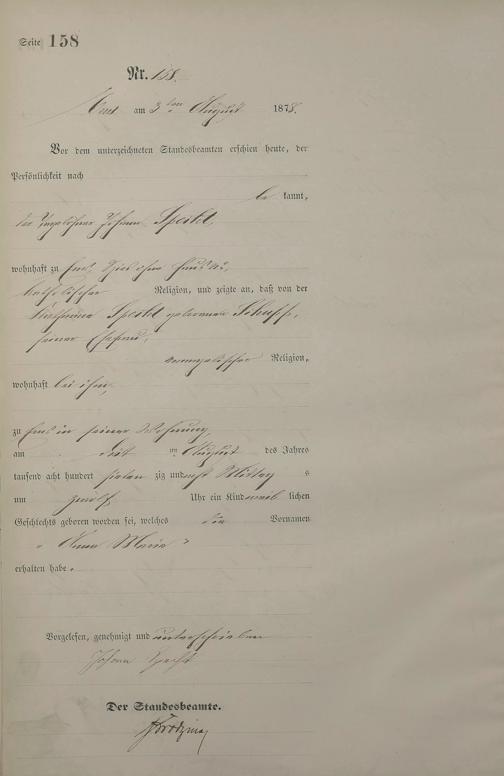 Seite 158
Nr. 158.
Ems am 3ten August 1878.
Vor dem unterzeichneten Standesbeamten erschien heute, der
Persönlichkeit nach
be kannt,
der Tagelöhner Johann Specht,
wohnhaft zu Ems,
katholischer Religion, und zeigte an, daß von der
Katharina Specht geborenen Schupp,
seiner Ehefrau,
evangelischer Religion,
wohnhaft bei ihm,
zu Ems in seiner Wohnung,
am ten August des Jahres
tausend acht hundert sieben zig und acht Mittag s
um zwölf Uhr ein Kind weib lichen
Geschlechts geboren worden sei, welches die Vornamen
"Anna Maria"
erhalten habe.
Vorgelesen, genehmigt und unterschrieben
Johann Specht
Der Standesbeamte.